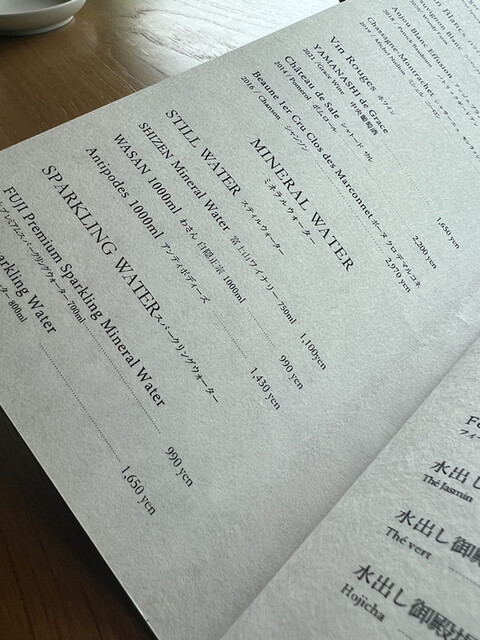 Blancs
Sauvignon Blanc
Anjou Blanc Effusion
2018 / Patrick Baudouin
Chassagne-Montrachet
2019 / Michel Niellon ミシェル・ニーロン
Vin Rouges
YAMANASHI de Grace
2021 / Grace Wine 中央葡萄酒
Château de Sale シャトード サル
2014 / Pomerol ポムロール
1,650 yen
Beaune 1er Cru Clos des Marconnet ボーヌ クロ デ マルコネ
2,200 yen
2016 / Chanson シャンソン
2,970 yen
MINERAL WATER
ミネラルウォーター
STILL WATER スティルウォーター
SHIZEN Mineral Water 富士山ワイナリー 750ml
1,100yen
WASAN 1000ml わさん 白隠正宗 1000ml
990 yen
Antipodes 1000ml アンティポディーズ
1,430 yen
SPARKLING WATER スパークリングウォーター
FUJI Premium Sparkling Mineral Water
プレミアムスパークリングウォーター 700ml
990 yen
Sparkling Water
ーター 800ml
1,650 yen
水出し
Thé Jasmin
水出し 御殿
Thé vert
水出し 御殿場
Hojicha